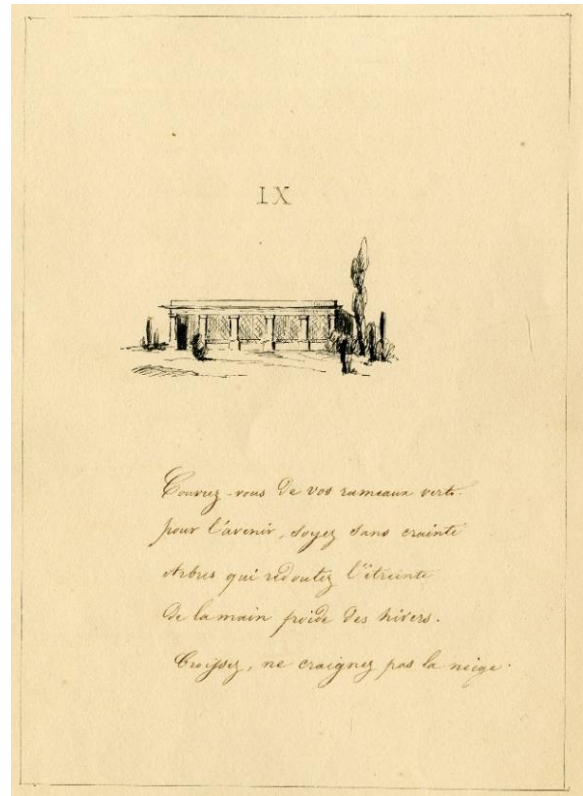 IX
Couvrez-vous de vos rameaux verts.
pour l'avenir, soyez sans crainte
Arbres qui redoutez l'étreinte
de la main froide des hivers.
Croissez, ne craignez pas la neige.